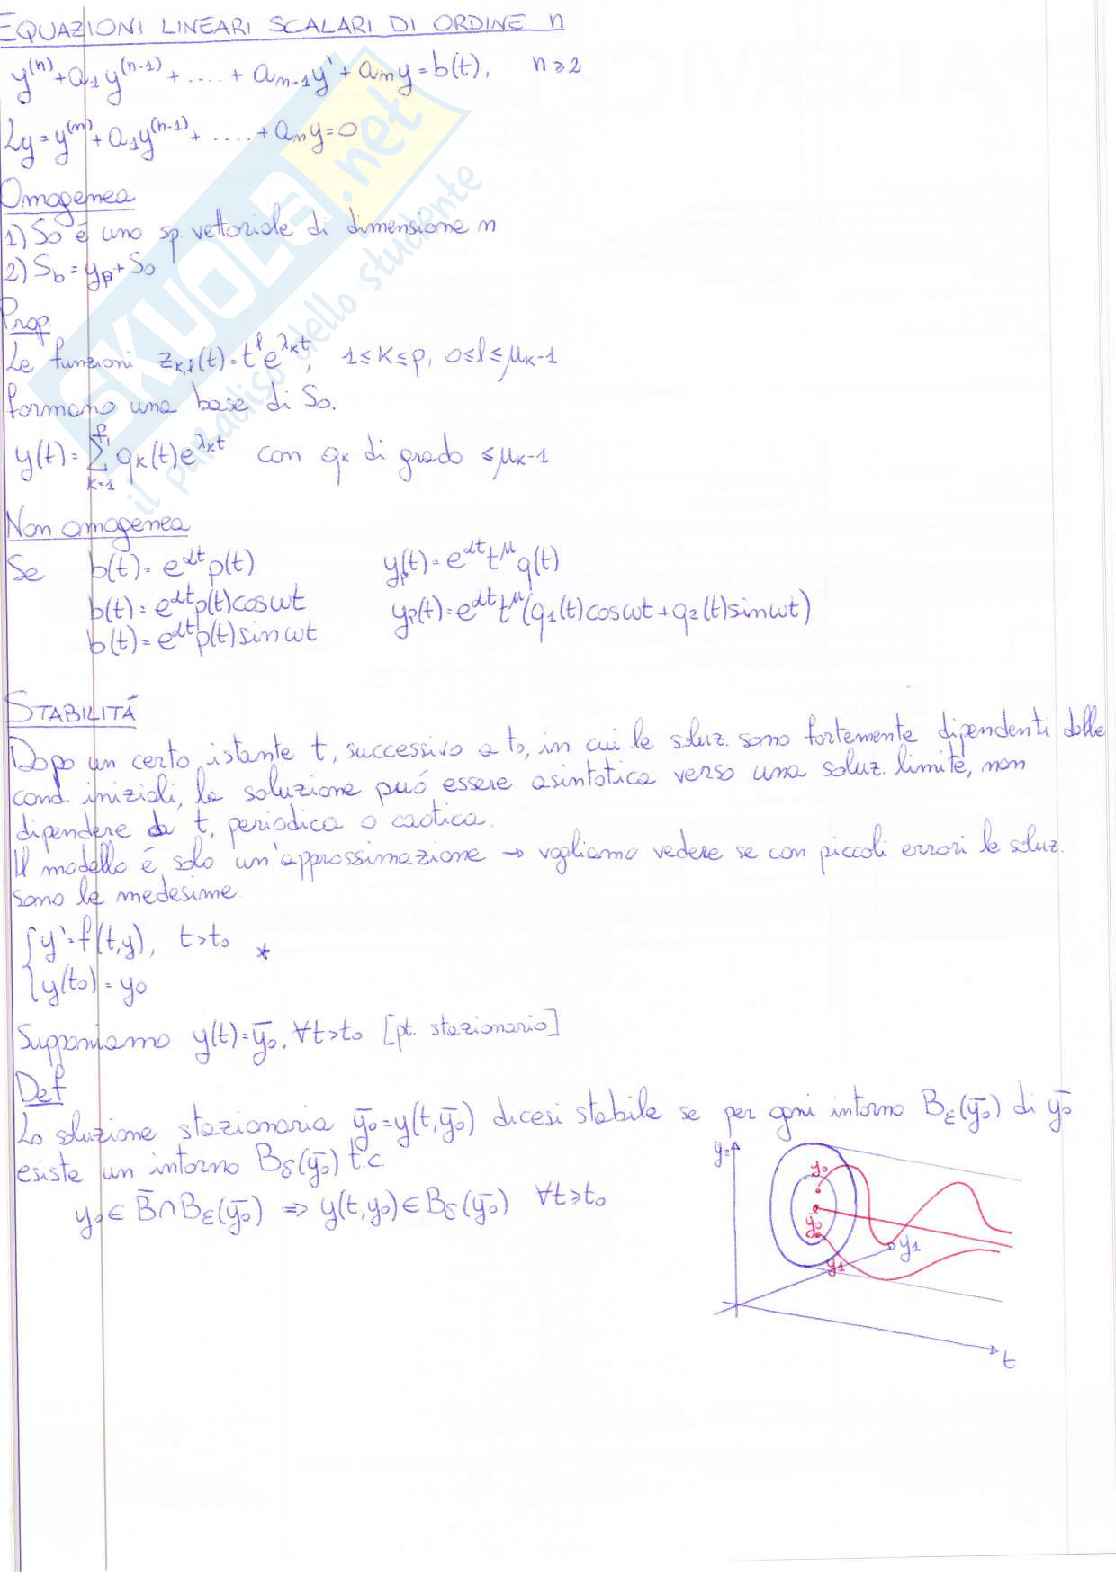 EQUAZIONI LINEARI SCALARI DI ORDINE n
y⁽ⁿ⁾+a₁y⁽ⁿ⁻¹⁾+....+aₙ₋₁y'+aₙy=b(t), n≥2
Ly=y⁽ⁿ⁾+a₁y⁽ⁿ⁻¹⁾+....+aₙy=0
Omogenea
1) S₀ é uno sp vettoriale di dimensione n
2) S_b=y_p+S₀
Prop
Le funzioni z_{k,l}(t)=t^l e^{λ_k t}, 1≤k≤p, 0≤l≤μ_k-1
formano una base di S₀.
y(t)=∑_{k=1}^{p} q_k(t)e^{λ_k t} con q_k di grado ≤μ_k-1
Non omogenea
Se b(t)=e^{αt}p(t) y_p(t)=e^{αt}t^μ q(t)
b(t)=e^{αt}p(t)cosωt y_p(t)=e^{αt}t^μ(q₁(t)cosωt+q₂(t)sinωt)
b(t)=e^{αt}p(t)sinωt
STABILITÁ
Dopo un certo istante t, successivo a t₀, in cui le soluz. sono fortemente dipendenti dalle
cond. iniziali, la soluzione puó essere asintotica verso una soluz. limite, non
dipendere da t, periodica o caotica.
Il modello é solo un'approssimazione → vogliamo vedere se con piccoli errori le soluz.
sono le medesime.
{y'=f(t,y), t>t₀ *
{y(t₀)=y₀
Supponiamo y(t)=ȳ₀, ∀t>t₀ [pt. stazionario]
Def
La soluzione stazionaria ȳ₀=y(t,ȳ₀) dicesi stabile se per ogni intorno B_ε(ȳ₀) di ȳ₀
esiste un intorno B_δ(ȳ₀) t.c
y₀∈B̄∩B_ε(ȳ₀) ⇒ y(t,y₀)∈B_δ(ȳ₀) ∀t≥t₀
y₂
y₀
ȳ₀
y₁
y₁
t
SKUOLA.net
il paradiso dello studente